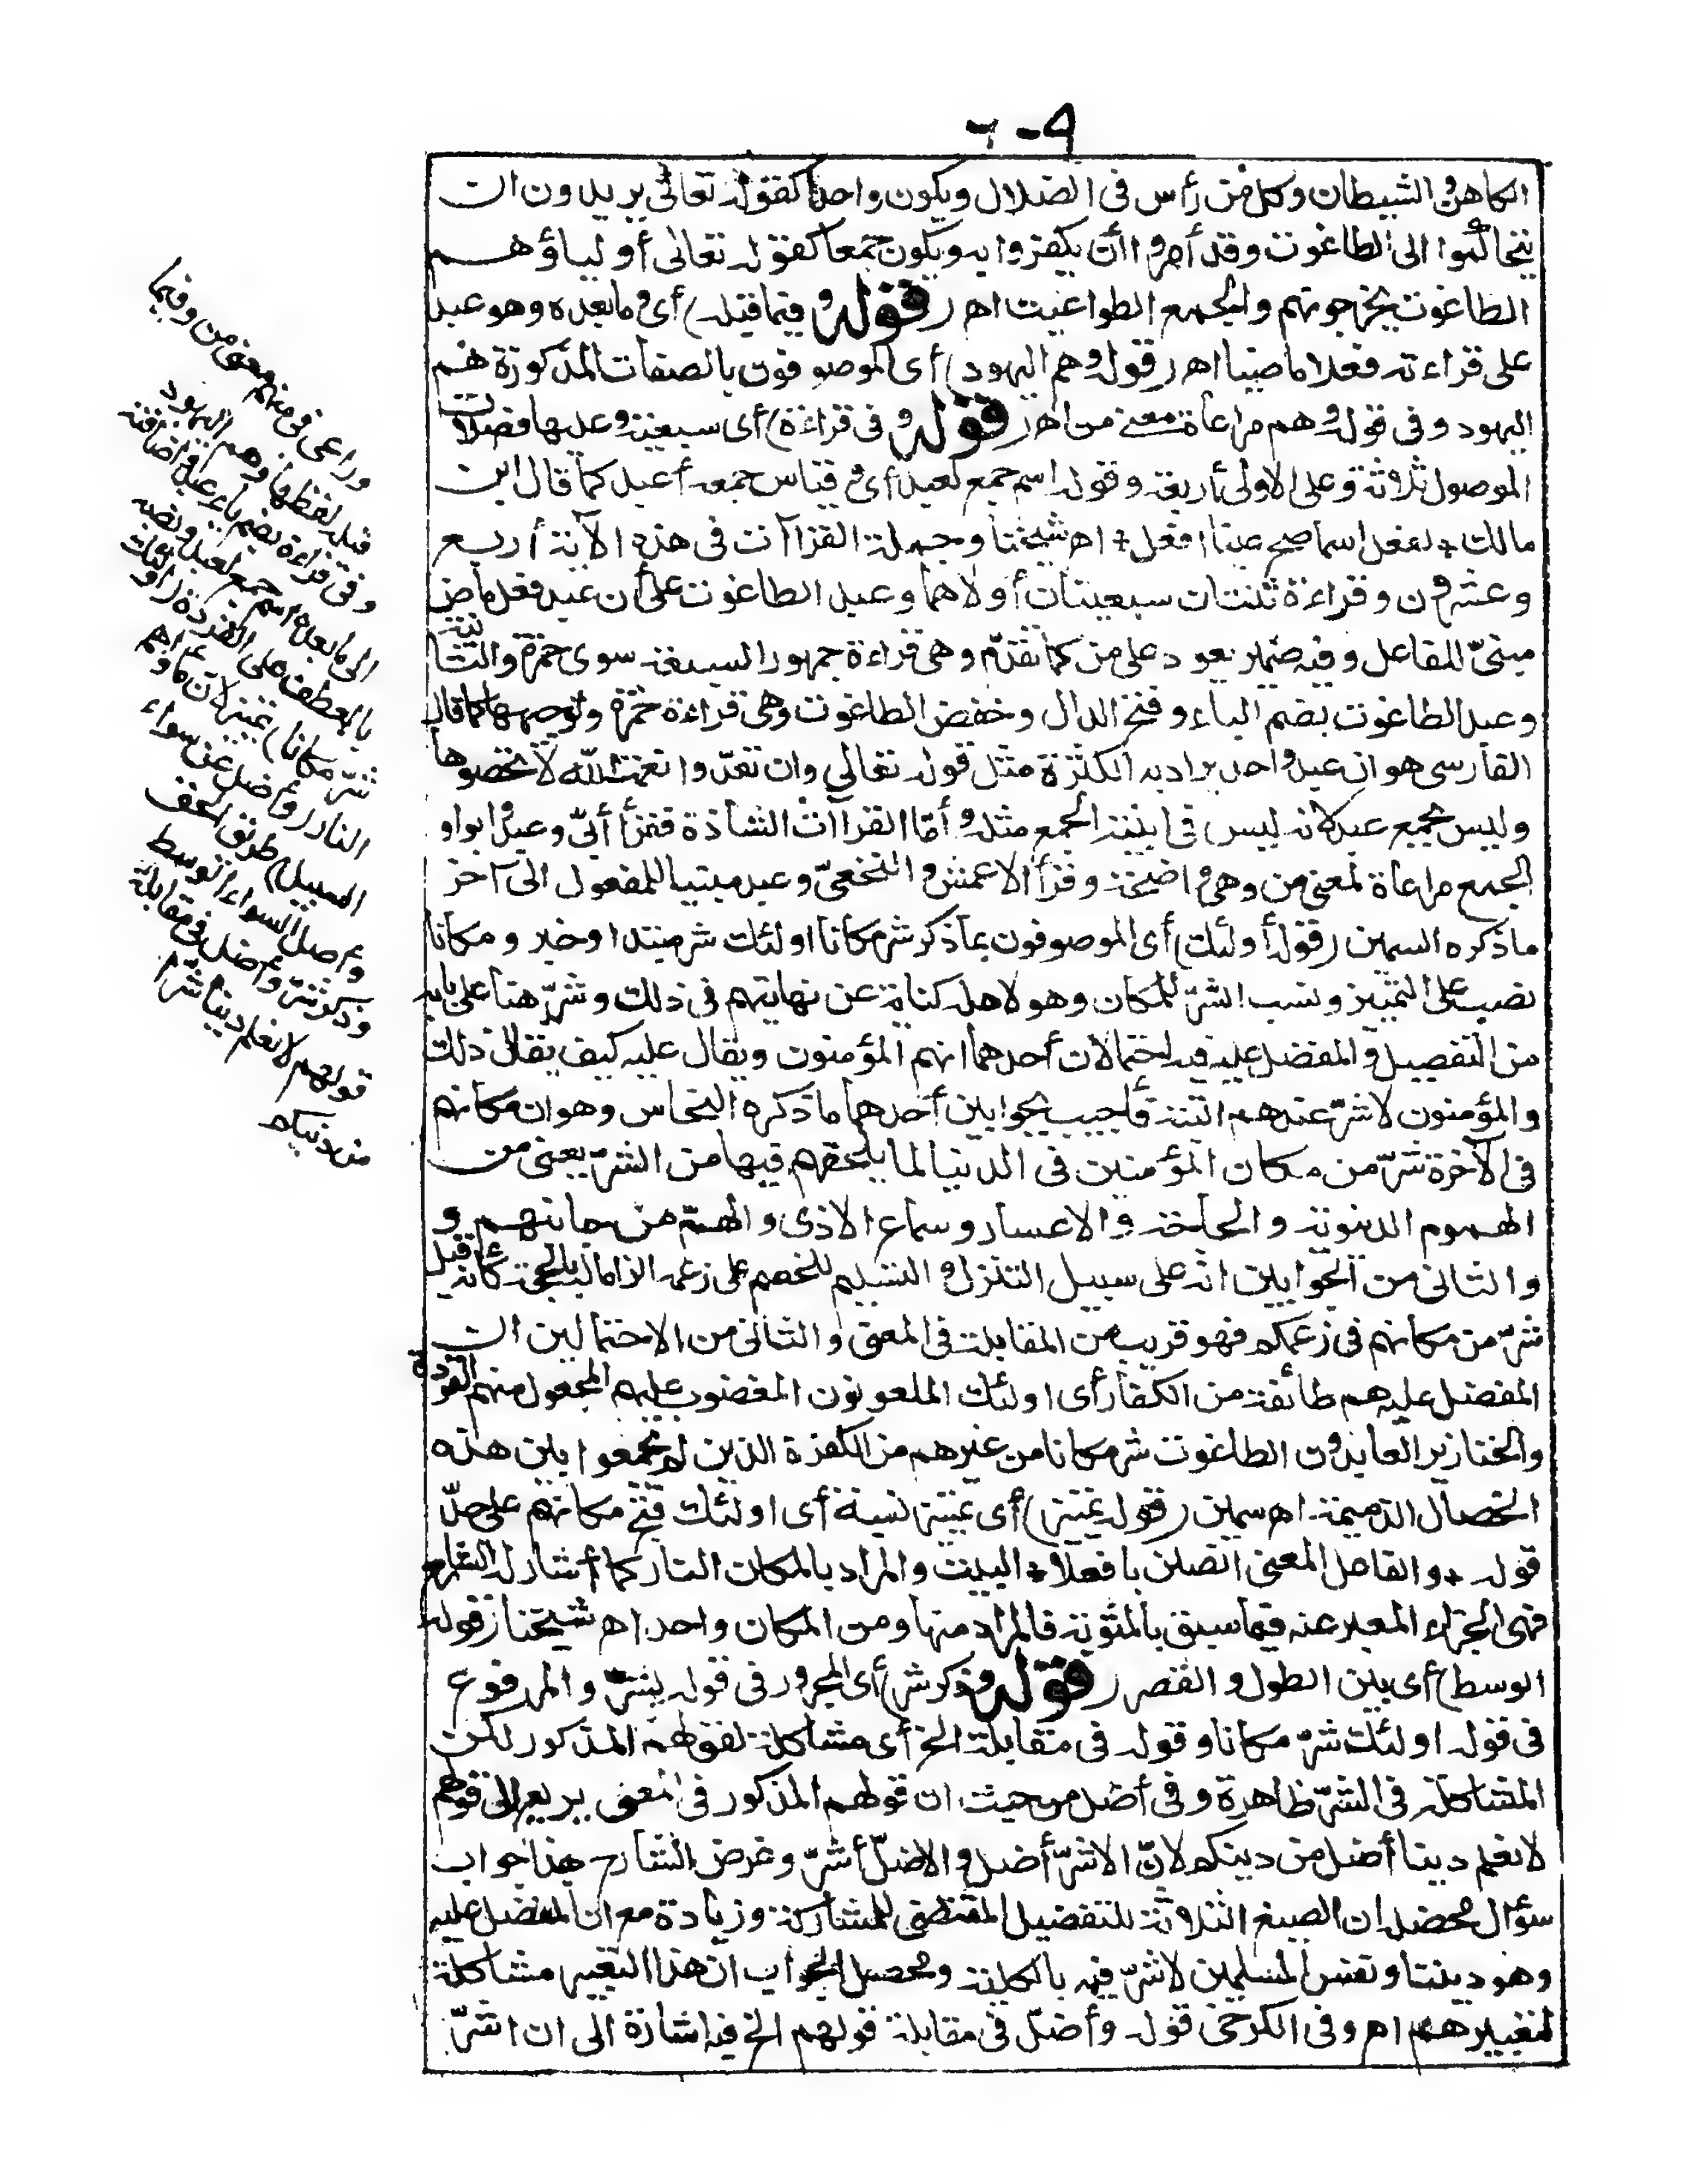 ٦٠٩
الكاهن والشيطان وكل من رأس في الضلال ويكون واحدا كقوله تعالى يريدون ان
يتحاكموا الى الطاغوت وقد أمروا أن يكفروا به ويكون جمعا كقوله تعالى أولياؤهم
الطاغوت يخرجونهم والجمع الطواغيت اه (قوله وفيما قبله) أى وما بعده وهو عبد
على قراءته فعلا ماضيا اه (قوله وهم اليهود) أى الموصوفون بالصفات المذكورة هم
اليهود وفى قوله وهم مراعاة معنى من اه (قوله وفى قراءة) أى سبعية وعليها فصلات
الموصول ثلاثة وعلى الاولى أربعة وقوله اسم جمع لعبد أى وقياس جمعه أعبد كما قال ابن
مالك * لفعل اسما صح عينا افعل * اه شيخنا وجملة القراآت فى هذه الآية أربع
وعشرون وقراءة ثنتان سبعيتان أولاهما وعبد الطاغوت على أن عبد فعل ماض
مبنىّ للفاعل وفيه ضمير يعود على من كما تقدّم وهى قراءة جمهور السبعة سوى حمزة والثانية
وعبد الطاغوت بضم الباء وفتح الدال وخفض الطاغوت وهى قراءة حمزة وتوجيهها كما قال
الفارسى هو ان عبد واحد يراد به الكثرة مثل قوله تعالى وان تعدّوا نعمت الله لا تحصوها
وليس بجمع عبد لانه ليس فى ابنية الجمع مثله وأمّا القراآت الشاذة فقرأ أبىّ وعبدوا بواو
الجمع مراعاة لمعنى من وهى واضحة وقرأ الاعمش والنخعىّ وعبد مبنيا للمفعول الى آخر
ما ذكره السمين (قوله أولئك) أى الموصوفون بما ذكر شر مكانا اولئك شر مبتدا وخبر ومكانا
نصب على التمييز ونسب الشرّ للمكان وهو لاهله كناية عن نهايتهم فى ذلك وشرّ هنا على بابه
من التفضيل والمفضل عليه فيه احتمالان أحدهما انهم المؤمنون ويقال عليه كيف يقال ذلك
والمؤمنون لا شرّ عندهم البتة فأجيب بجوابين أحدهما ما ذكره النحاس وهو ان مكانهم
فى الآخرة شرّ من مكان المؤمنين فى الدنيا لما يلحقهم فيها من الشرّ يعنى من
الهموم الدنيوية والحاجة والاعسار وسماع الاذى والهمّ من جانبهم و
والثانى من الجوابين انه على سبيل التنزل والتسليم للخصم على زعمه الزاما له بالحجة كأنه قيل
شرّ من مكانهم فى زعمكم فهو قريب من المقابلة فى المعنى والثانى من الاحتمالين ان
المفضل عليهم طائفة من الكفار أى اولئك الملعونون المغضوب عليهم المجعول منهم القردة
والخنازير العابدون الطاغوت شر مكانا من غيرهم من الكفرة الذين لم يجمعوا بين هذه
الخصال الذميمة اه سمين (قوله تمييز) أى تمييز نسبة أى اولئك قبح مكانهم على حدّ
قوله * والفاعل المعنى انصبن بافعلا * البيت والمراد بالمكان النار كما أشار له الشارح
فهى الجزاء المعبر عنه فيما سبق بالمثوبة فالمراد منها ومن المكان واحد اه شيخنا (قوله
الوسط) أى بين الطول والقصر (قوله وذكر شر) أى المجرور فى قوله بشرّ والمرفوع
فى قوله اولئك شرّ مكانا وقوله فى مقابلة الخ أى مشاكلة لقولهم المذكور لكن
المشاكلة فى الشرّ ظاهرة وفى أضل من حيث ان قولهم المذكور فى المعنى يرجع الى قولهم
لا نعلم دينا أضل من دينكم لانّ الاشرّ أضل والاضلّ أشرّ وغرض الشارح بهذا جواب
سؤال محصله ان الصيغ الثلاثة للتفضيل المقتضى للمشاركة وزيادة مع ان المفضل عليه
وهو ديننا ونفس المسلمين لا شرّ فيه بالكلية ومحصل الجواب ان هذا التعبير مشاكلة
لتعبيرهم اه وفى الكرخى قوله وأضلّ فى مقابلة قولهم الخ فيه اشارة الى ان اشرّ
وراعى فى منهم معنى من وفيما
قبله لفظها وهم اليهود
وفى قراءة بضم باء عبد واضافته
الى ما بعده اسم جمع لعبد ونصبه
بالعطف على القردة (اولئك
شرّ مكانا) تمييز لان مأواهم
النار (وأضل عن سواء
السبيل) طريق الحق
وأصل السواء الوسط
وذكر شرّ وأضل فى مقابلة
قولهم لا نعلم دينا شرّا
من دينكم